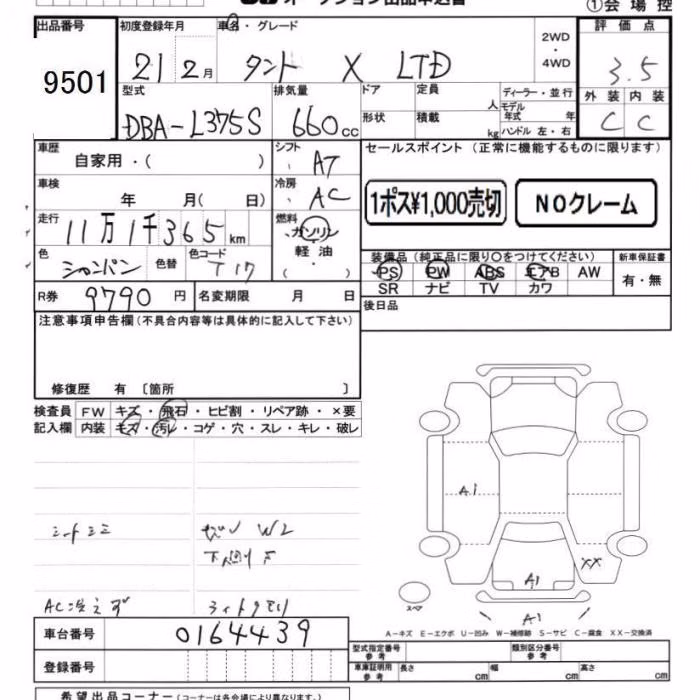 ①会場控
出品番号 初度登録年月 車名・グレード 2WD・4WD 評価点
9501 21 2月 タント X LTD 3.5
型式 排気量 ドア 定員 人 ディーラー・並行 外装 内装
DBA-L375S 660cc 形状 積載 kg モデル年式 年 ハンドル 左・右 C C
車歴 自家用・( ) シフト AT セールスポイント(正常に機能するものに限ります)
車検 年 月( 日) 冷房 AC 1ポス¥1,000売切 NOクレーム
走行 11万1千365km 燃料 ガソリン 軽油 ( ・ )
色 シャンパン 色替 色コード T17 装備品(純正品に限り○をつけてください) 新車保証書
PS PW ABS エアB AW 有・無
SR ナビ TV カワ
R券 9790円 名変期限 月 日 後日品
注意事項申告欄(不具合内容等は具体的に記入して下さい)
修復歴 有 〔箇所 〕
検査員 FW キズ・飛石・ヒビ割・リペア跡・×要
記入欄 内装 キズ・汚レ・コゲ・穴・スレ・キレ・破レ
シートシミ W2
下廻り
A1
XX
A1
AC冷えず ライトクモリ スペア A1
A-キズ E-エクボ U-凹み W-補修跡 S-サビ C-腐食 XX-交換済
車台番号 0164439
型式指定番号 参考 類別区分番号 参考
登録番号 車庫証明用 参考 長さ cm 幅 cm 高さ cm
希望出品コーナー(コーナーは各会場により異なります。)